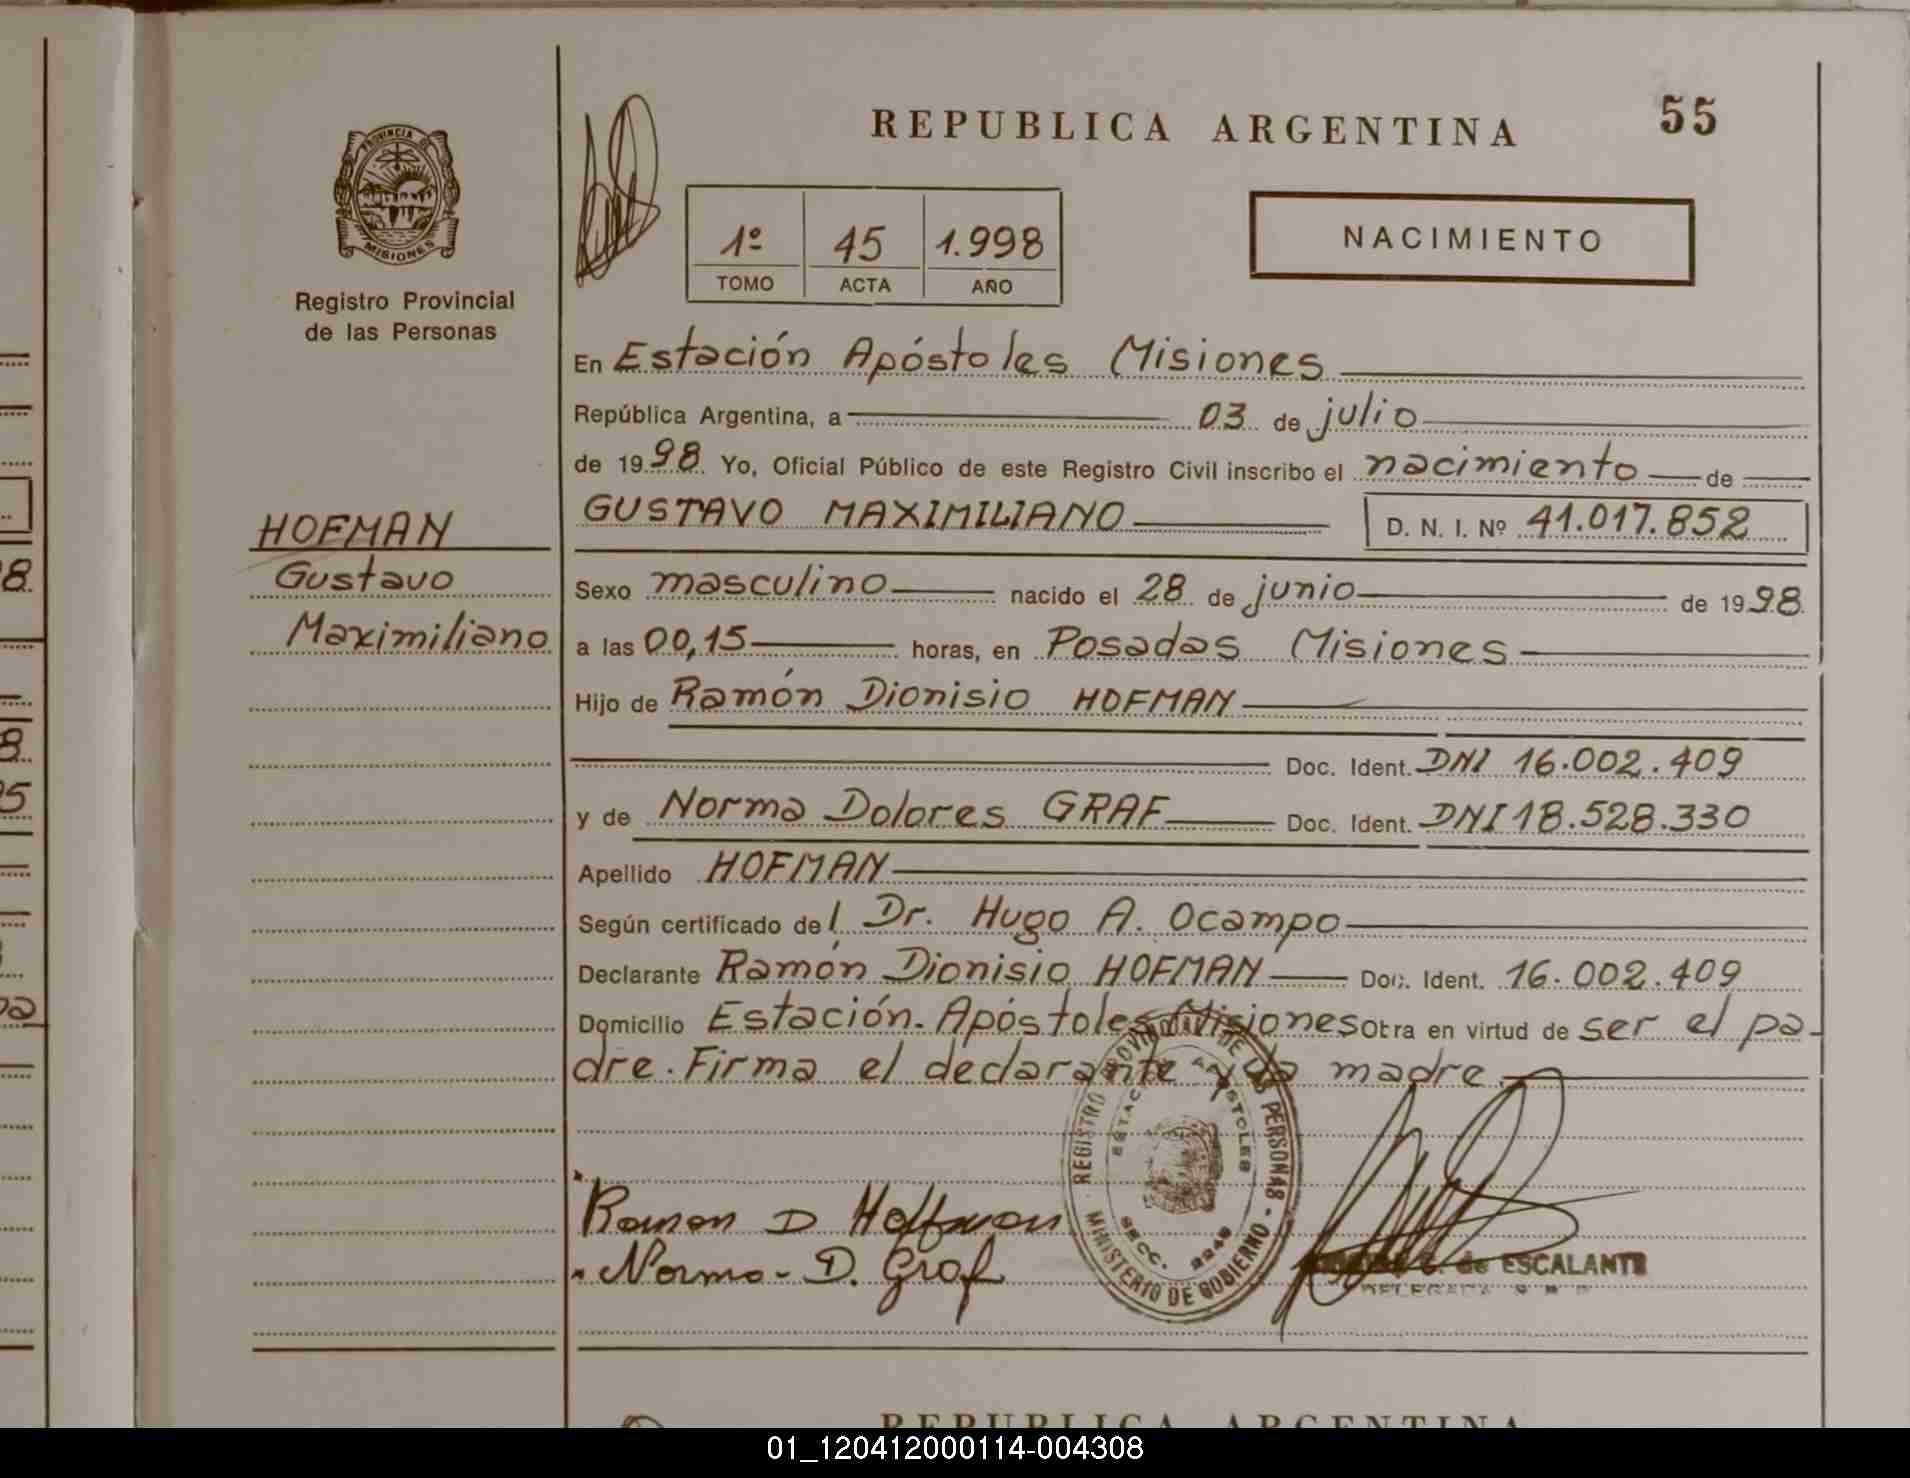 REPUBLICA ARGENTINA
55
PROVINCIA DE
MISIONES
Registro Provincial
de las Personas
1º 45 1.998
TOMO ACTA AÑO
NACIMIENTO
En Estación Apóstoles Misiones
República Argentina, a 03 de julio
de 1998 Yo, Oficial Público de este Registro Civil inscribo el nacimiento de
GUSTAVO MAXIMILIANO D. N. I. Nº 41.017.852
HOFMAN
Gustavo
Maximiliano
Sexo masculino nacido el 28 de junio de 1998
a las 00,15 horas, en Posadas Misiones
Hijo de Ramón Dionisio HOFMAN
Doc. Ident. DNI 16.002.409
y de Norma Dolores GRAF Doc. Ident. DNI 18.528.330
Apellido HOFMAN
Según certificado del Dr. Hugo A. Ocampo
Declarante Ramón Dionisio HOFMAN Doc. Ident. 16.002.409
Domicilio Estación Apóstoles Misiones Obra en virtud de ser el pa-
dre. Firma el declarante y la madre.
REGISTRO PROVINCIAL DE LAS PERSONAS - MINISTERIO DE GOBIERNO -
ESTACION APOSTOLES
SECC. 2248
Ramon D Hoffman
Norma - D. Graf
de ESCALANTE
DELEGADA
REPUBLICA ARGENTINA
01_120412000114-004308